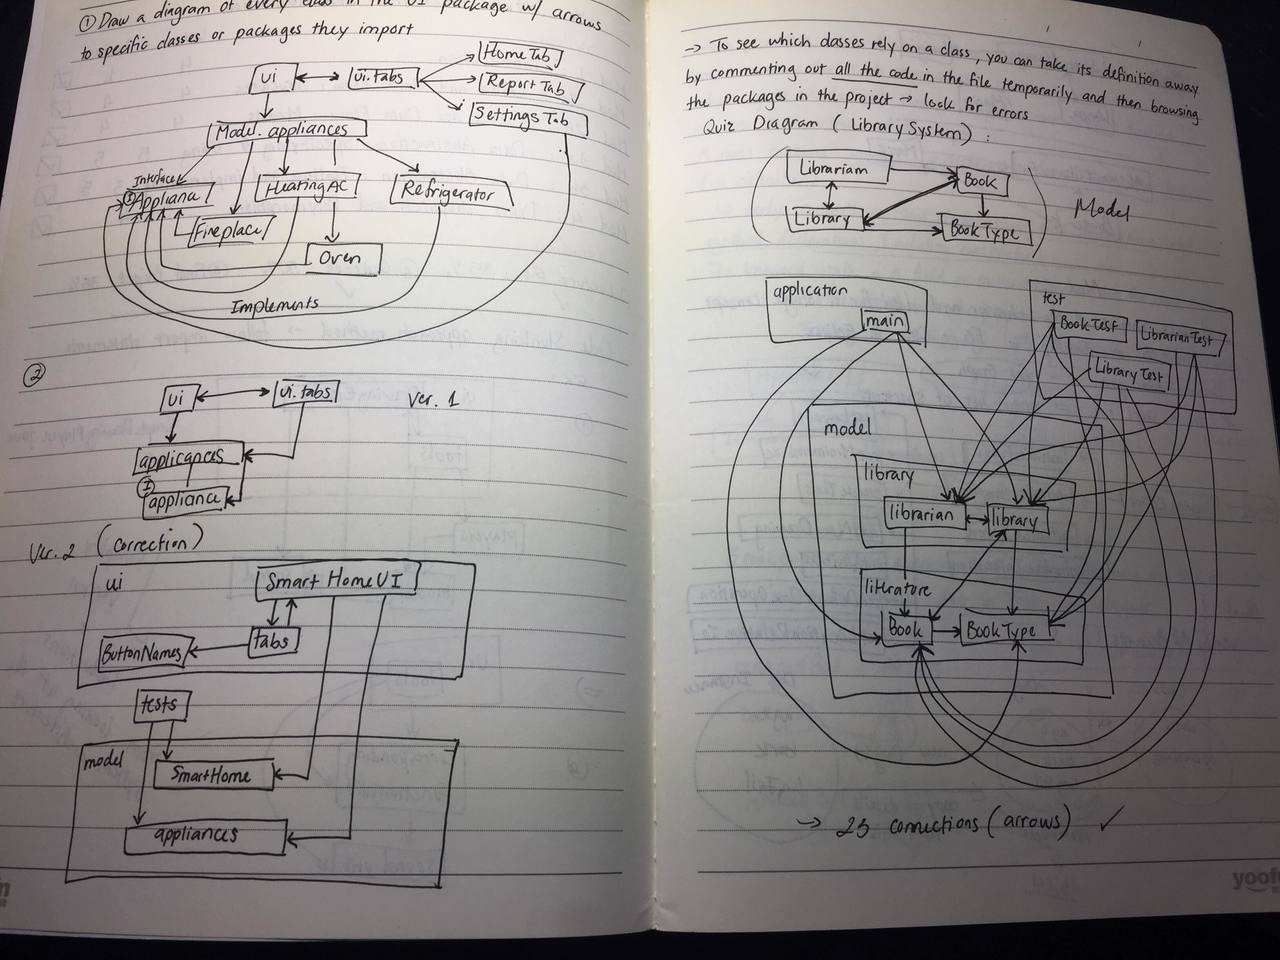 ① Draw a diagram of every class in the UI package w/ arrows
to specific classes or packages they import
ui
ui.tabs
HomeTab
Report Tab
Settings Tab
Model.appliances
Interface
① Applianc
HeatingAC
Refrigerator
Fireplace
Oven
Implements
②
ui
ui.tabs
Ver. 1
applicances
I
appliance
Ver. 2 (correction)
ui
Smart HomeUI
Tabs
ButtonNames
tests
model
SmartHome
appliances
→ To see which classes rely on a class, you can take its definition away
by commenting out all the code in the file temporarily and then browsing
the packages in the project → look for errors
Quiz Diagram (Library System) :
Librariam
Book
Library
BookType
Model
application
main
test
BookTest
LibrarianTest
LibraryTest
model
library
librarian
library
literature
Book
BookType
→ 25 connections (arrows) ✓
yoof